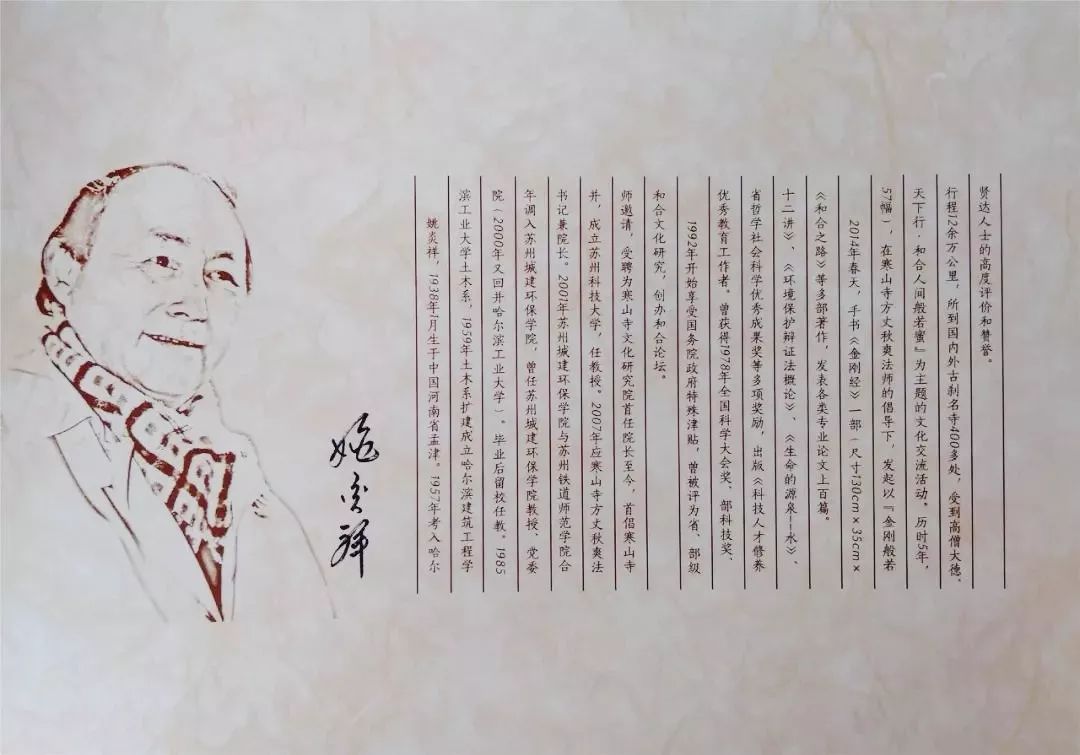 姚炎祥
姚炎祥，1938年1月生于中国河南省孟津。1957年考入哈尔
滨工业大学土木系，1959年土木系扩建成立哈尔滨建筑工程学
院（2000年又回并哈尔滨工业大学）。毕业后留校任教。1985
年调入苏州城建环保学院，曾任苏州城建环保学院教授、党委
书记兼院长。2001年苏州城建环保学院与苏州铁道师范学院合
并，成立苏州科技大学，任教授。2007年应寒山寺方丈秋爽法
师邀请，受聘为寒山寺文化研究院首任院长至今，首倡寒山寺
和合文化研究，创办和合论坛。
1992年开始享受国务院政府特殊津贴，曾被评为省、部级
优秀教育工作者。曾获得1978年全国科学大会奖、部科技奖、
省哲学社会科学优秀成果奖等多项奖励，出版《科技人才修养
十二讲》、《环境保护辩证法概论》、《生命的源泉--水》、
《和合之路》等多部著作，发表各类专业论文上百篇。
2014年春天，手书《金刚经》一部（尺寸130cm×35cm×
57幅），在寒山寺方丈秋爽法师的倡导下，发起以『金刚般若
天下行·和合人间般若蜜』为主题的文化交流活动，历时5年，
行程12余万公里，所到国内外古刹名寺400多处，受到高僧大德、
贤达人士的高度评价和赞誉。